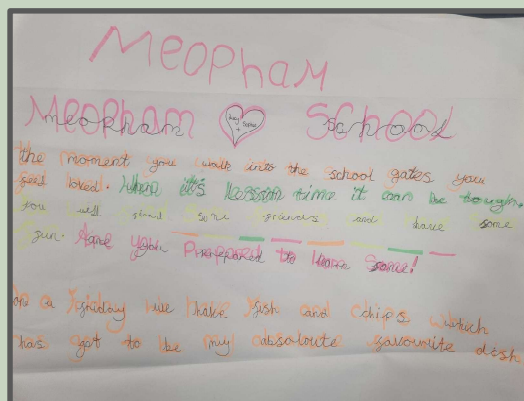 MEOPHAM
MEOPHAM SCHOOL
meopham school
the moment you walk into the school gates you
feel loved. When it's lesson time it can be tough.
you will find some friends and have some
fun. Are you Prepared to Have Some!
On a friday we have fish and chips which
has got to be my absoloute favourite dish